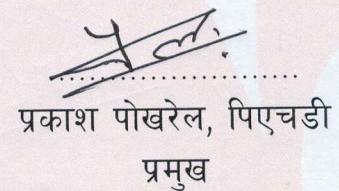 प्रकाश पोखरेल, पिएचडी
प्रमुख